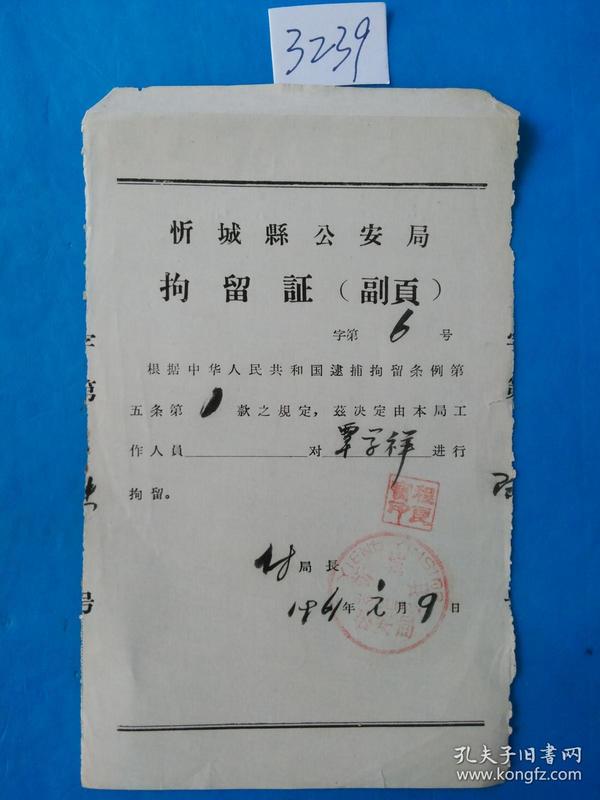 3239
忻城縣公安局
拘留証（副頁）
字第 6 号
根据中华人民共和国逮捕拘留条例第
五条第 1 款之規定，茲决定由本局工
作人員 对 覃学祥 进行
拘留。
付局長
1961年元月9日
公安局
孔夫子旧書网
www.kongfz.com